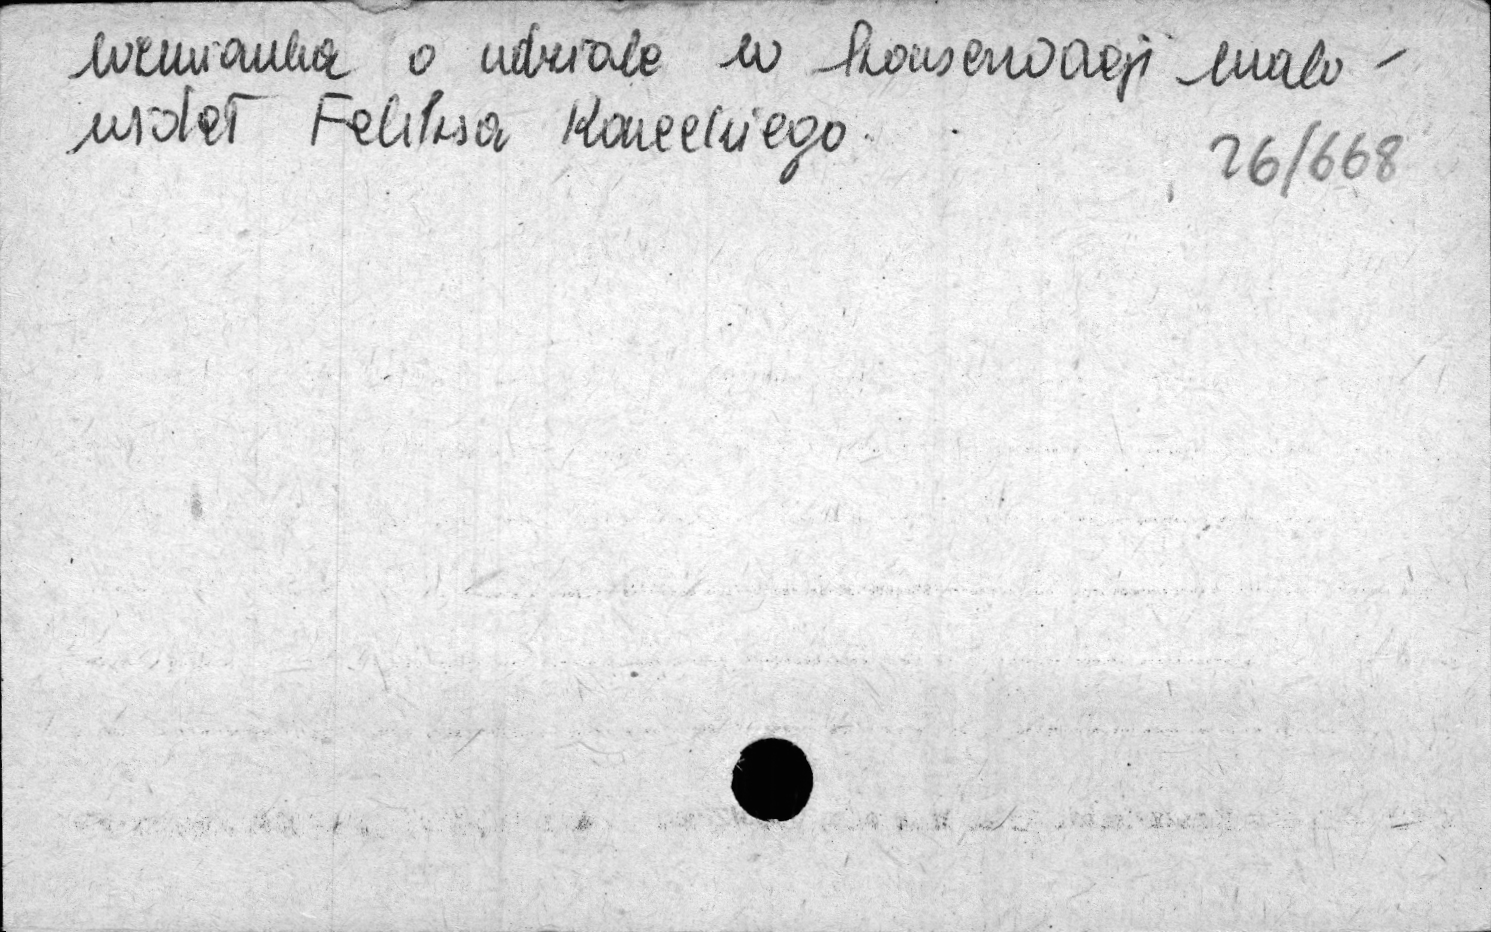 wzmianka o udziale w konserwacji malo-
wideł Feliksa Kaneckiego.
26/668